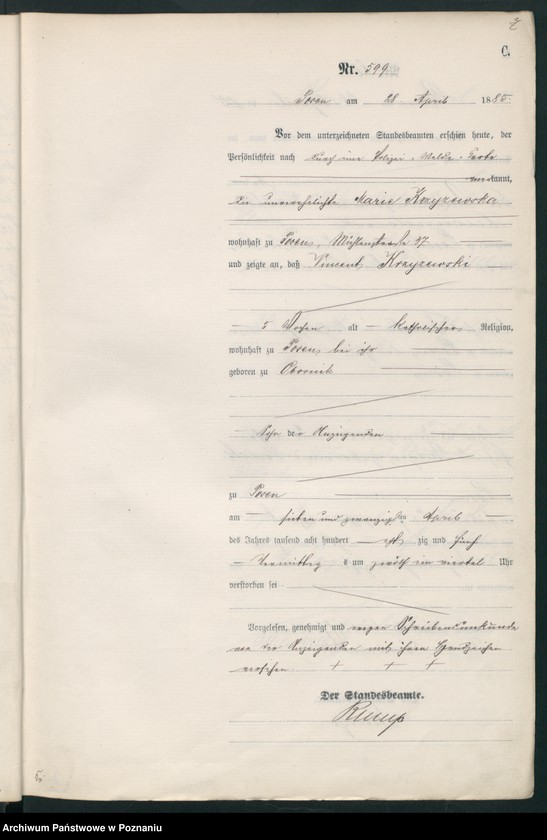 C.
Nr. 599.
Posen am 28 April 1885.
Vor dem unterzeneten Standesbeamten erschien heute, der
Persönlichkeit nach durch eine Polizei-Melde-Karte
kannt,
die unverehelichte Marie Krzyzewska
wohnhaft zu Posen, Mühlenstraße 17
und zeigte an, daß Vincent Krzyzewski
5 Wochen alt katholischer Religion,
wohnhaft zu Posen bei ihr
geboren zu Obornik
Sohn der Anzeigenden
zu Posen
am sieben und zwanzigsten April
des Jahres tausend acht hundert acht zig und fünf
Vormittag s um zwölf ein viertel Uhr
verstorben sei
Vorgelesen, genehmigt und wegen Schreibensunkunde
von der Anzeigenden mit ihren Handzeichen
versehen + + +
Der Standesbeamte.
Archiwum Państwowe w Poznaniu